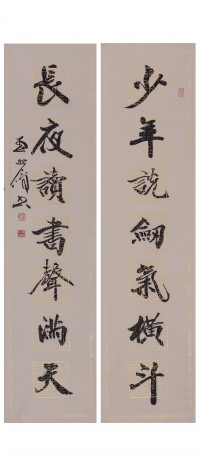 少年說劒氣橫斗
長夜讀書聲滿天